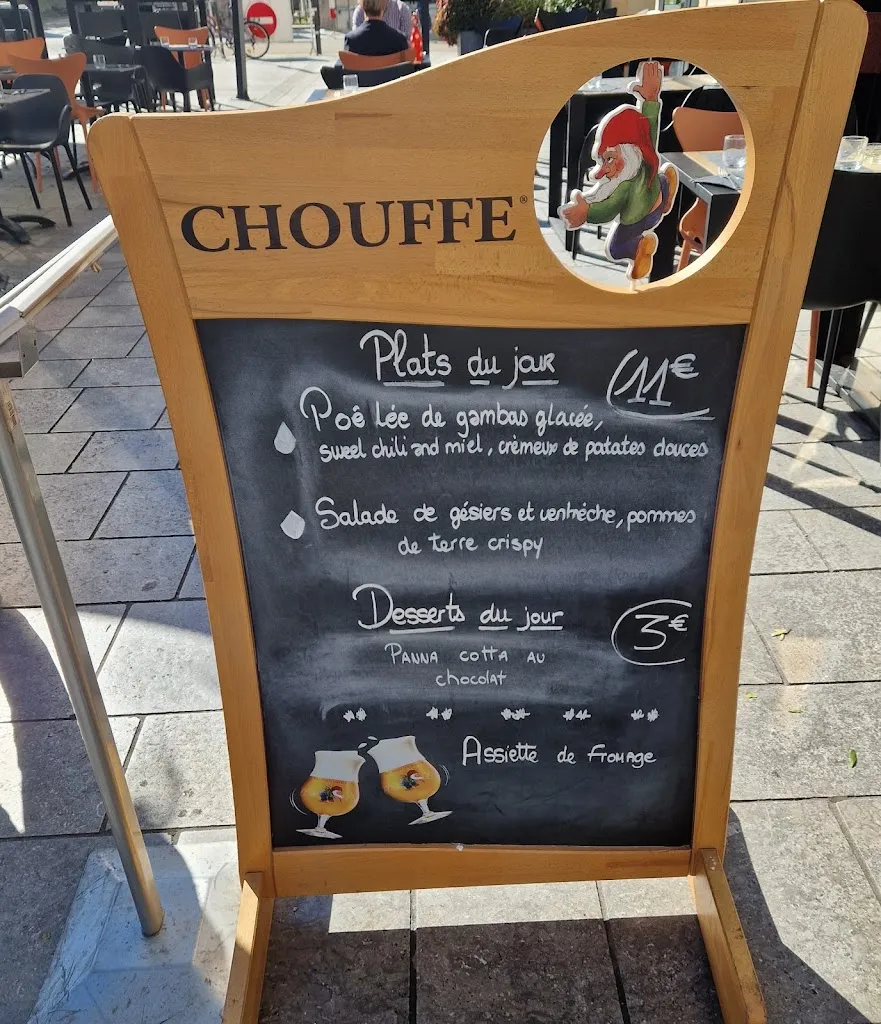 CHOUFFE®
Plats du jour
11€
Poê lée de gambas glacée,
sweet chili and miel, crèmeux de patates douces
Salade de gésiers et ventrèche, pommes
de terre crispy
Desserts du jour
3€
PANNA COTTA AU
chocolat
Assiette de fromage